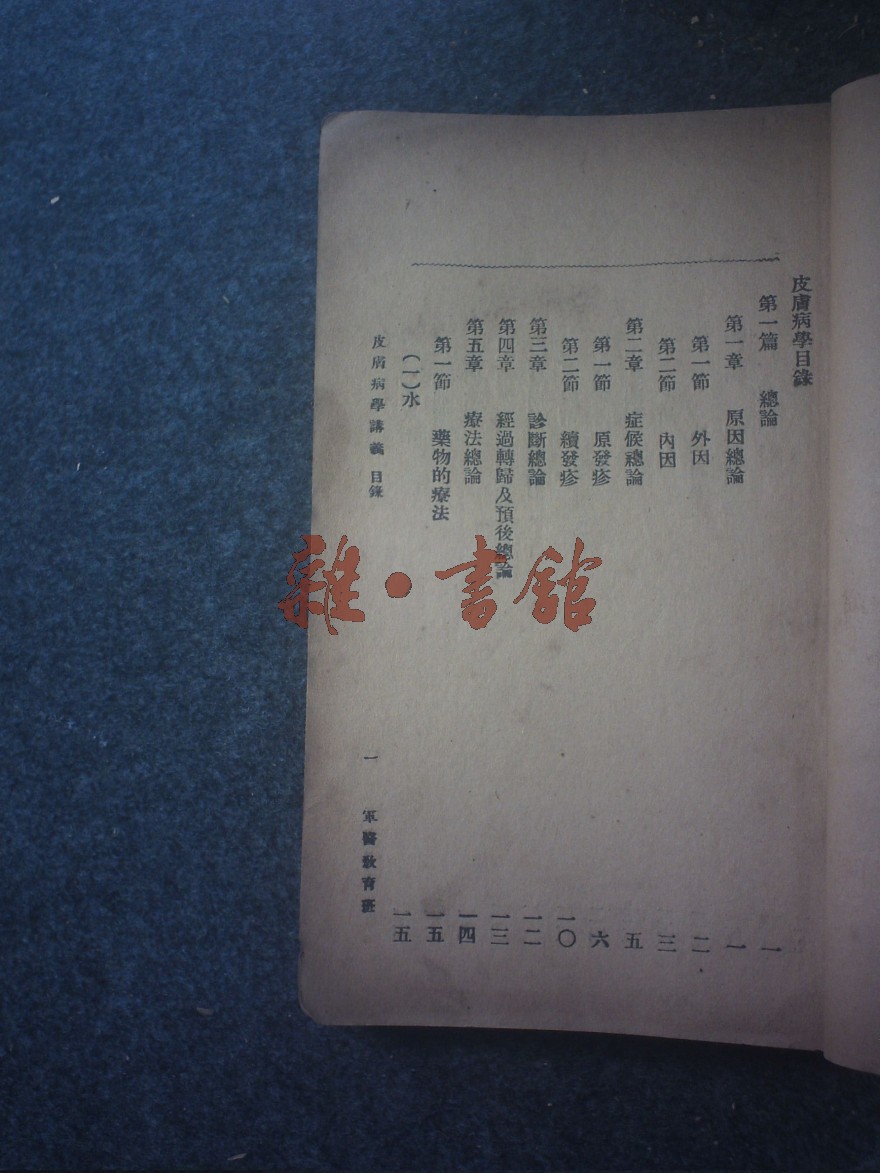 皮膚病學目錄
第一篇 總論 一
第一章 原因總論 一
第一節 外因 二
第二節 內因 三
第二章 症候總論 五
第一節 原發疹 六
第二節 續發疹 一〇
第三章 診斷總論 一二
第四章 經過轉歸及預後總論 一三
第五章 療法總論 一四
第一節 藥物的療法 一五
(一)水 一五
皮膚病學講義 目錄 一 軍醫教育班
雜·書館